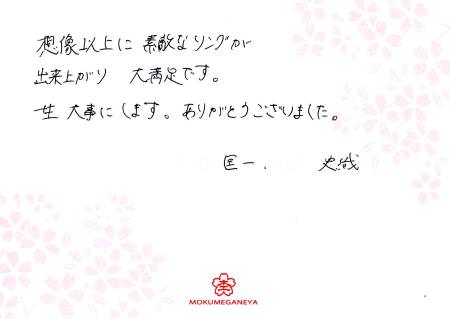 想像以上に 素敵なリングが
出来上がり 大満足です。
一生 大事にします。ありがとうございました。
匡一. 史織
MOKUMEGANEYA